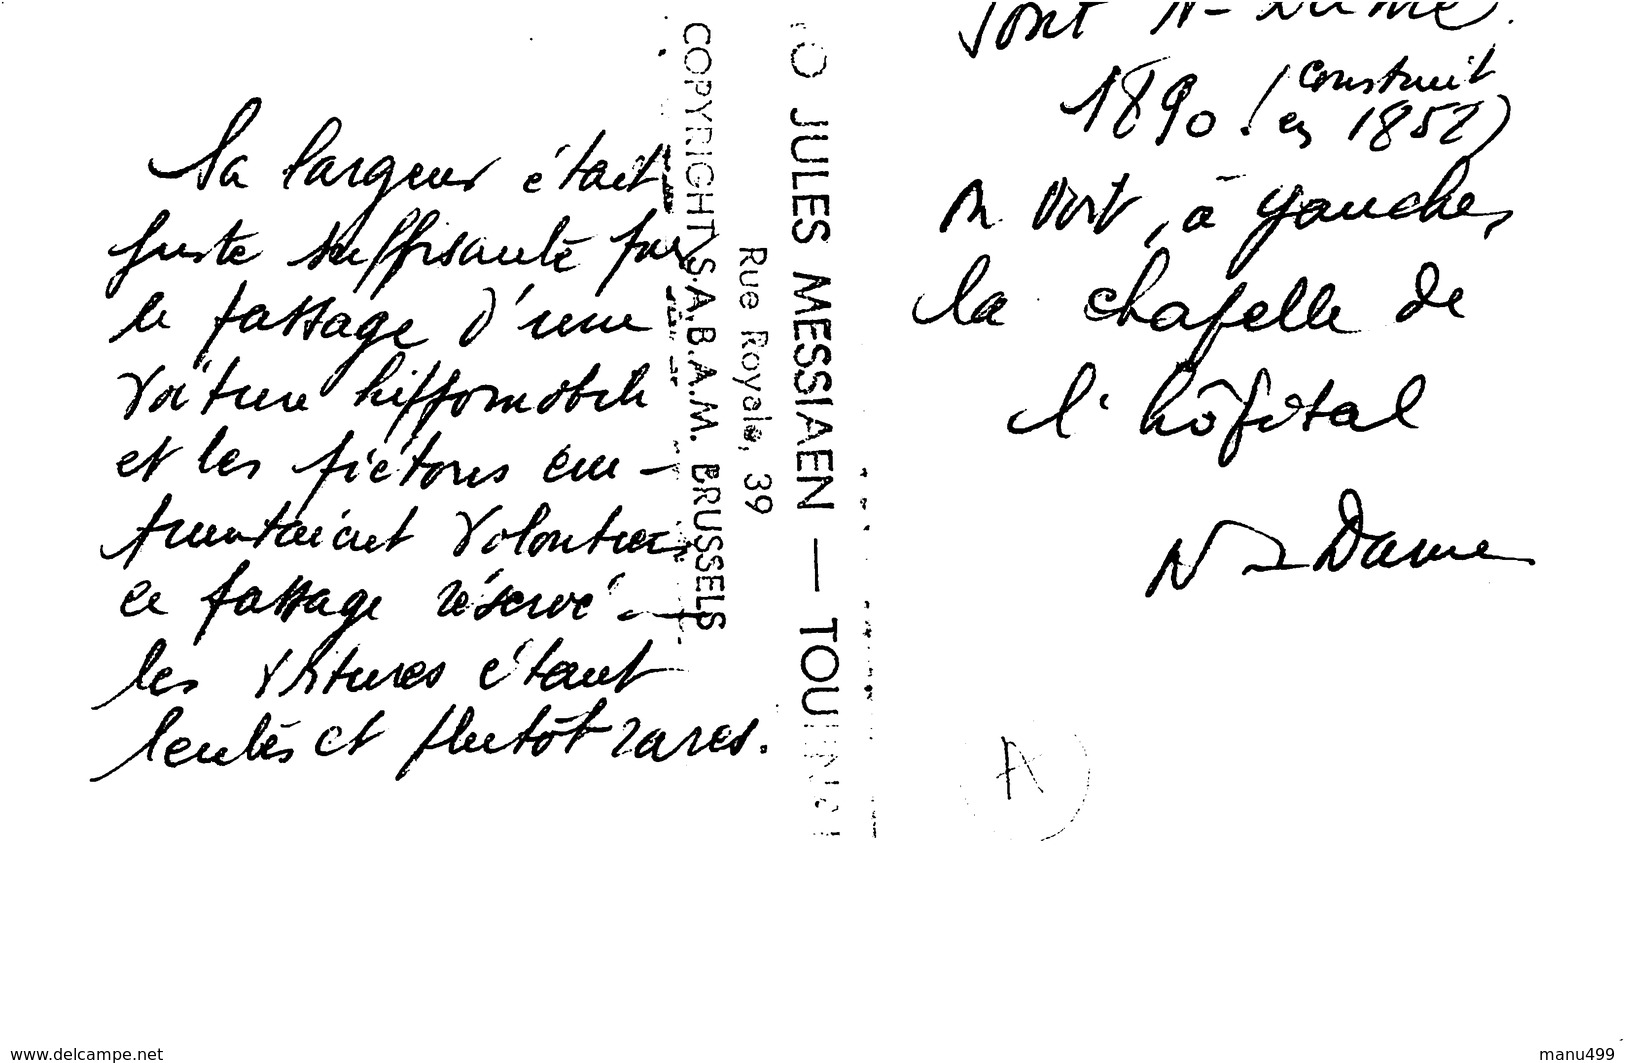 Sa largeur était
juste suffisante pour
le passage d'une
voiture hippomobile
et les piétons em-
pruntaient volontiers
ce passage réservé -
les voitures étant
lentes et plutôt rares.
COPYRIGHT S.A.B.A.M. BRUSSELS
Rue Royale, 39
JULES MESSIAEN — TOURNAI
Pont N-Dame.
1890. (construit
en 1852)
On voit, à gauche,
la chapelle de
l'hôpital
N-Dame
A
www.delcampe.net
manu499